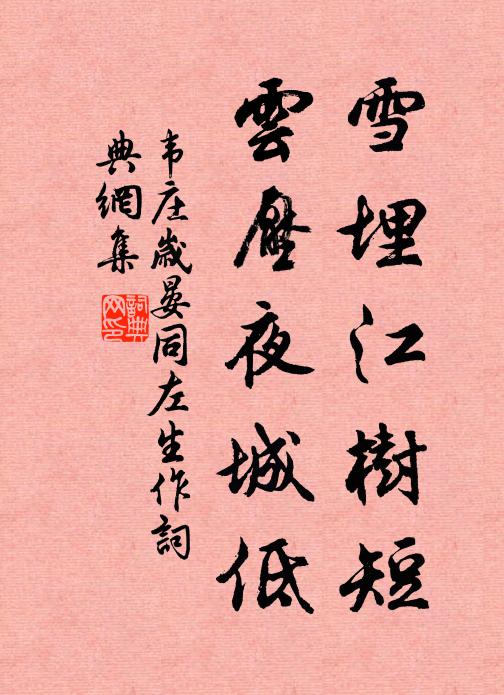 雪埋江樹短
雲壓夜城低
韦庄嵗晏同左生作詞
典網集
詞典网印